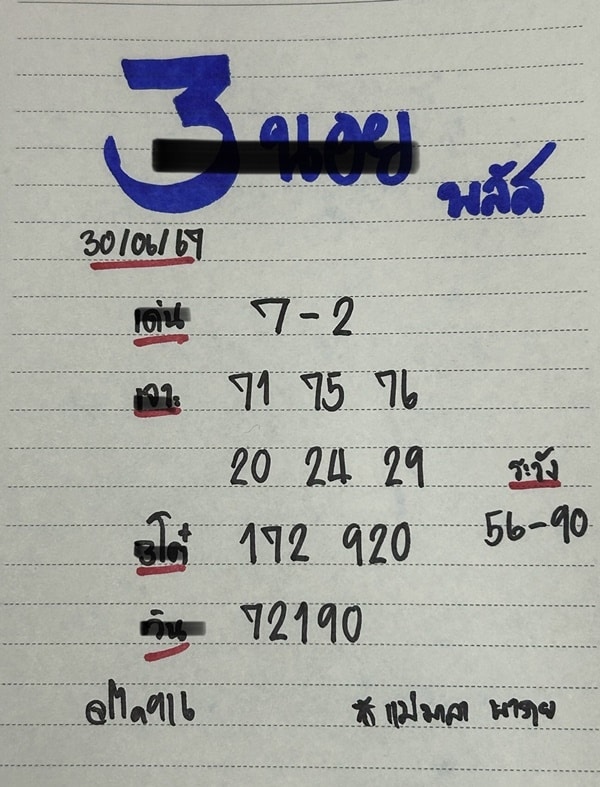 3 นอย
พลัส
30/06/67
เด่น 7-2
เจาะ 71 75 76
20 24 29 ระวัง
56-90
3โต๋ 172 920
วิน 72190
*แม่มาลา พารวย